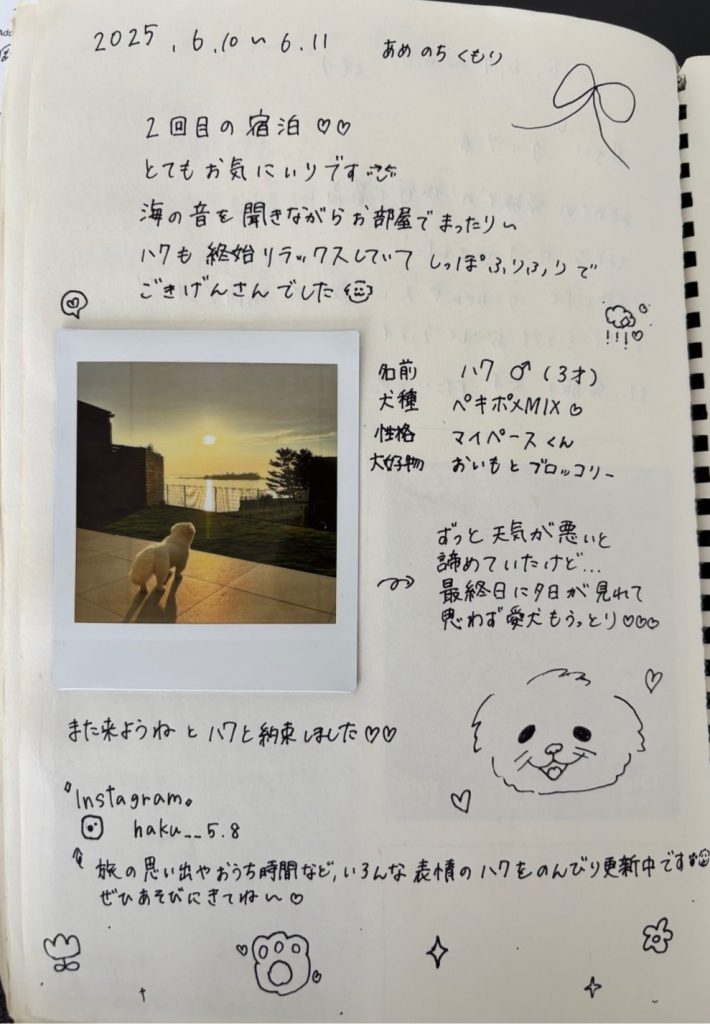 2025.6.10〜6.11
あめ のち くもり
2回目の宿泊♡♡
とてもお気にいりです
海の音を聞きながらお部屋でまったり〜
ハクも終始リラックスしていて しっぽふりふりで
ごきげんさんでした
!!!♡
名前 ハク ♂ (3才)
犬種 ペキポ×MIX♡
性格 マイペースくん
大好物 おいもとブロッコリー
ずっと天気が悪いと
諦めていたけど...
最終日に夕日が見れて
思わず愛犬もうっとり♡♡♡
また来ようね とハクと約束しました♡♡
Instagram。
haku__5.8
旅の思い出やおうち時間など,いろんな表情のハクをのんびり更新中です
ぜひあそびにきてね〜♡